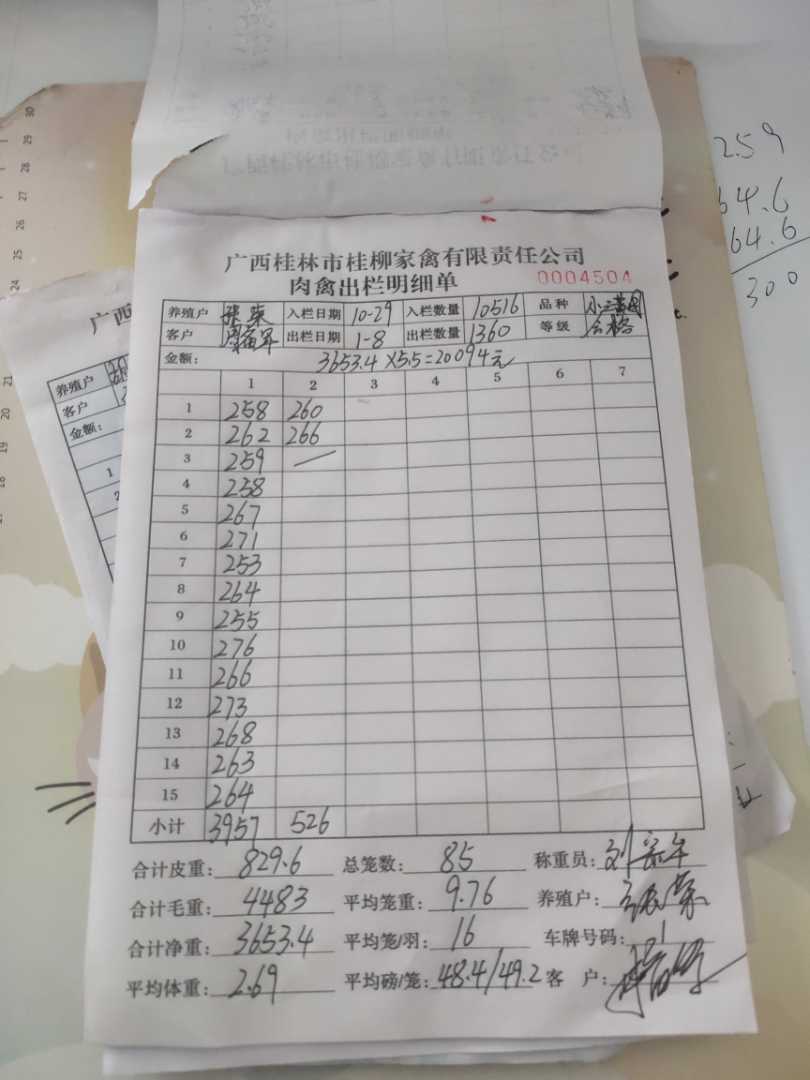 259
64.6
64.6
300
广西桂林市桂柳家禽有限责任公司
肉禽出栏明细单 0004504
养殖户 入栏日期 10-29 入栏数量 10516 品种
客户 出栏日期 1-8 出栏数量 1360 等级 合格
金额: 3653.4×5.5=20094元
1 2 3 4 5 6 7
1 258 260
2 262 266
3 259 —
4 258
5 267
6 271
7 253
8 264
9 255
10 276
11 266
12 273
13 268
14 263
15 264
小计 3957 526
合计皮重: 829.6 总笼数: 85 称重员:
合计毛重: 4483 平均笼重: 9.76 养殖户:
合计净重: 3653.4 平均笼/羽: 16 车牌号码: 1
平均体重: 2.69 平均磅/笼: 48.4/49.2 客 户:
广西
养殖户
客户
金额:
1